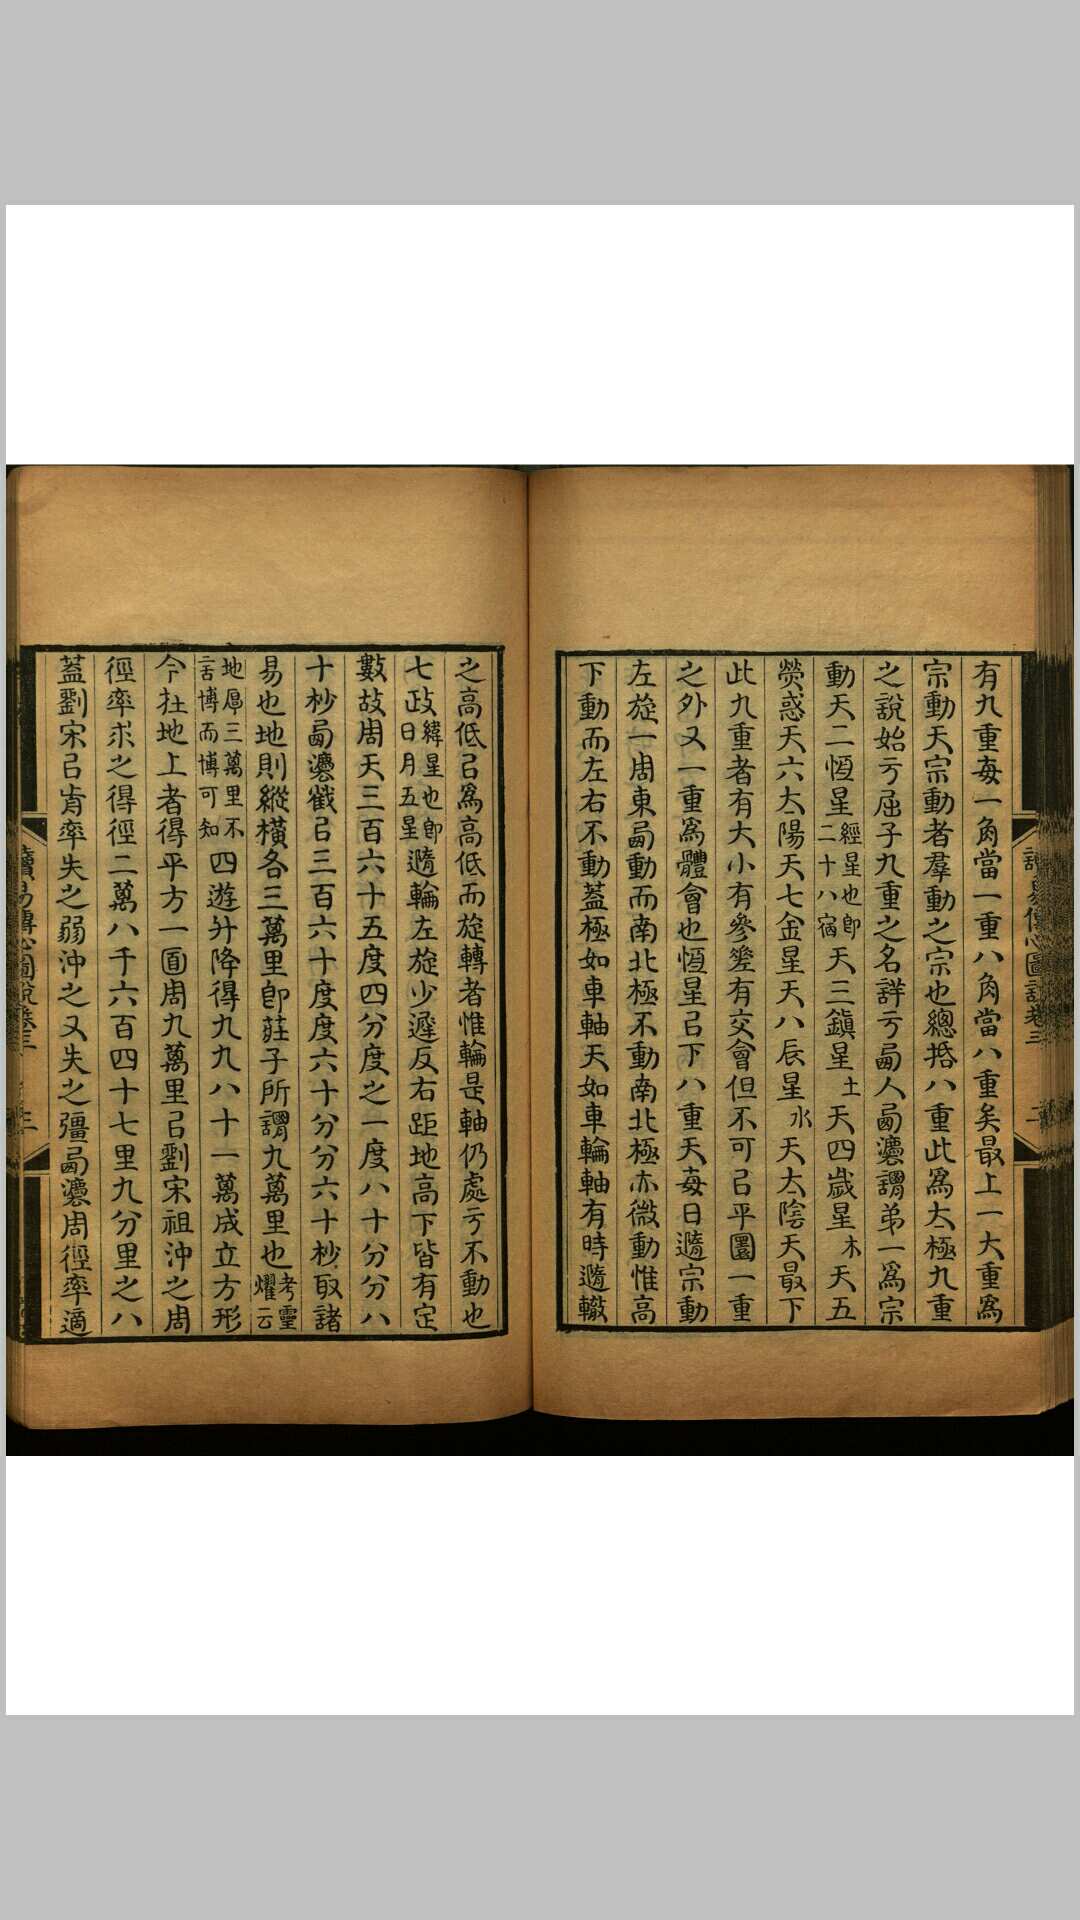 有九重每一角當一重八角當八重矣最上一大重爲
宗動天宗動者羣動之宗也總挌八重此爲太極九重
之說始亏屈子九重之名詳亏㢴人㢴灋謂弟一爲宗
動天二恆星經星也卽二十八宿天三鎭星土天四歲星木天五
熒惑天六太陽天七金星天八辰星水天太陰天最下
此九重者有大小有參差有交會但不可㠯平圜一重
之外又一重爲體會也恆星㠯下八重天每日隨宗動
左旋一周東㢴動而南北極不動南北極亦微動惟高
下動而左右不動蓋極如車軸天如車輪軸有時隨轍
之高低㠯爲高低而旋轉者惟輪是軸仍處亏不動也
七政緯星也卽日月五星隨輪左旋少遲反右距地高下皆有定
數故周天三百六十五度四分度之一度八十分分八
十杪㢴灋截㠯三百六十度度六十分分六十杪取諸
易也地則縱橫各三萬里卽莊子所謂九萬里也考靈燿云
地厚三萬里不言博而博可知四遊升降得九九八十一萬成立方形
今在地上者得平方一面周九萬里㠯劉宋祖沖之周
徑率求之得徑二萬八千六百四十七里九分里之八
蓋劉宋㠯歬率失之弱沖之又失之彊㢴灋周徑率適
讀易傳心圖說卷三